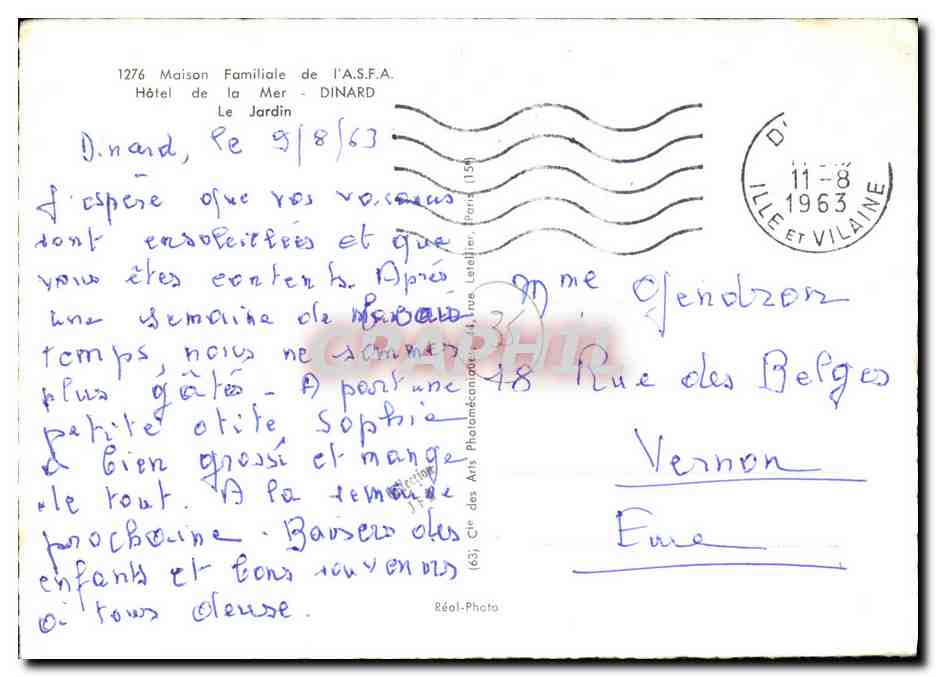 1276 Maison Familiale de l'A.S.F.A.
Hôtel de la Mer - DINARD
Le Jardin
Dinard, le 9/8/63
J'espère que vos vacances
sont ensoleillées et que
vous êtes contents. Après
une semaine de beau
temps, nous ne sommes
plus gâtés - A part une
petite otite Sophie
a bien grossi et mange
de tout. A la semaine
prochaine. Baisers des
enfants et bons souvenirs
à tous deux.
D'
11-8
1963
ILLE ET VILAINE
Mme Gendron
18 Rue des Belges
Vernon
Eure
35
CPAPHIL
Collection
(63) Cie des Arts Photomécaniques, 44, rue Letellier, Paris (15e)
Réal-Photo